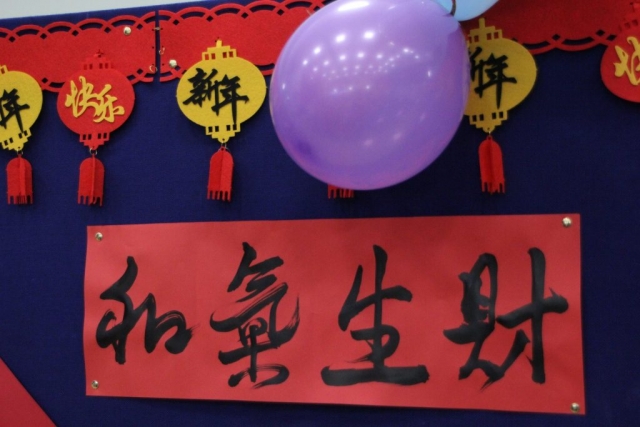 新年
快乐
新年
新年
快
和氣生財